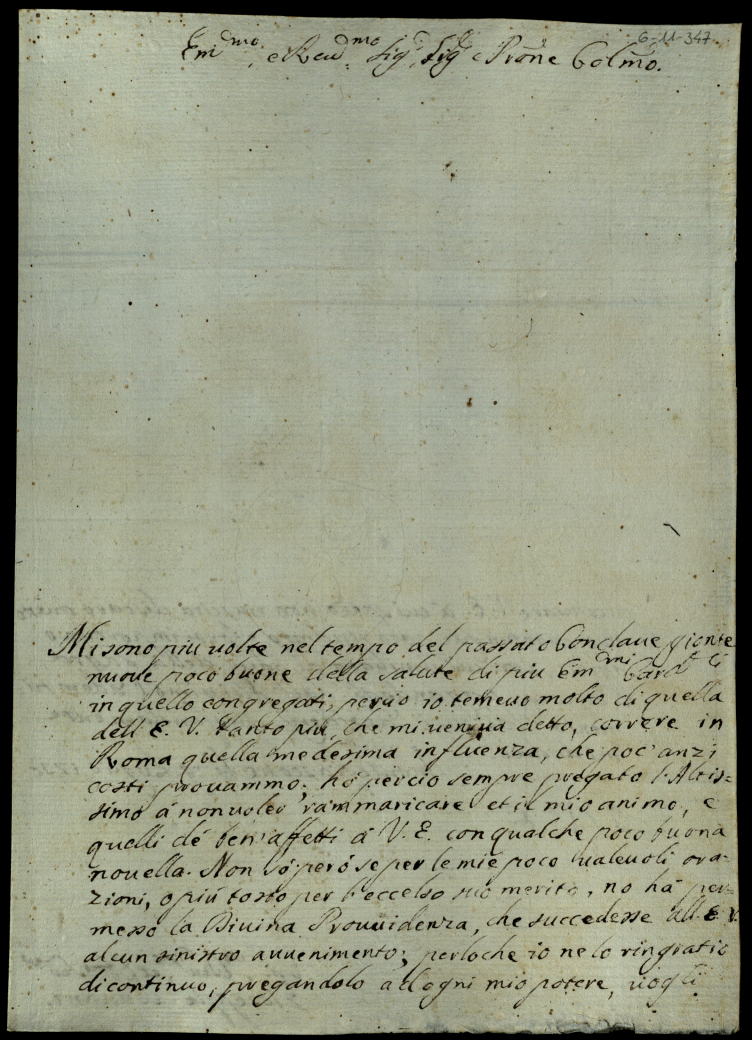 6-11-347
Em.mo e Reu.mo Sig.r Sig.r e Prone Colmo.
Mi sono piu uolte nel tempo del passato Conclaue gionte
nuoue poco buone della salute di piu Em.mi Card.li
in quello congregati, percio io temeuo molto di quella
dell E. V. tanto piu, che mi ueniua detto, correre in
Roma quella medesima influenza, che poc' anzi
costi prouammo; hó percio sempre pregato l'Altis=
simo á non uoler rammaricare et il mio animo, e
quelli dé ben' affetti á V. E. con qualche poco buona
nouella. Non só peró se per le mie poco ualeuoli ora=
zioni, o piú tosto per l'eccelso suó merito, no há per=
messo la Diuina Prouuidenza, che succedesse all E. V.
alcun sinistro auuenimento; perloche io ne lo ringratio
di continuo, pregandolo ad ogni mio potere, uogli